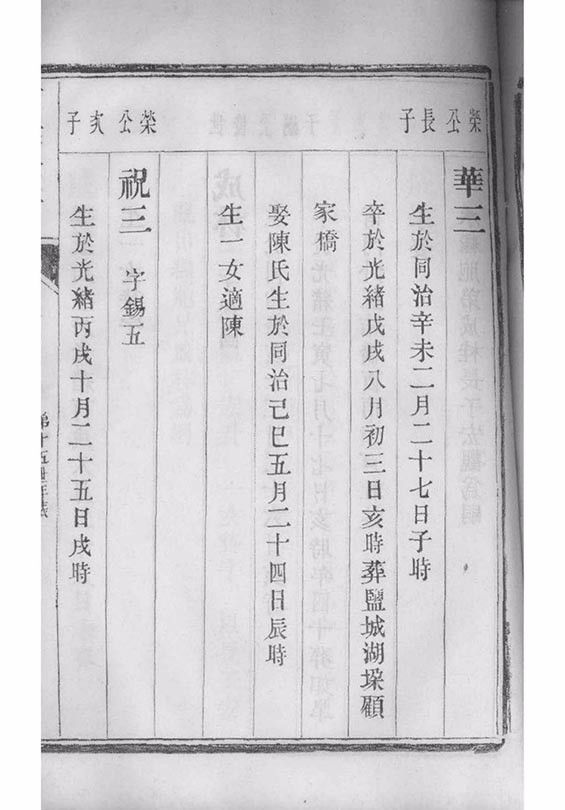 榮公長子
華三
生於同治辛未二月二十七日子時
卒於光緒戊戌八月初三日亥時葬鹽城湖垛顧
家橋
娶陳氏生於同治己巳五月二十四日辰時
生一女適陳
榮公次子
祝三 字錫五
生於光緒丙戌十月二十五日戌時
第十五世年表